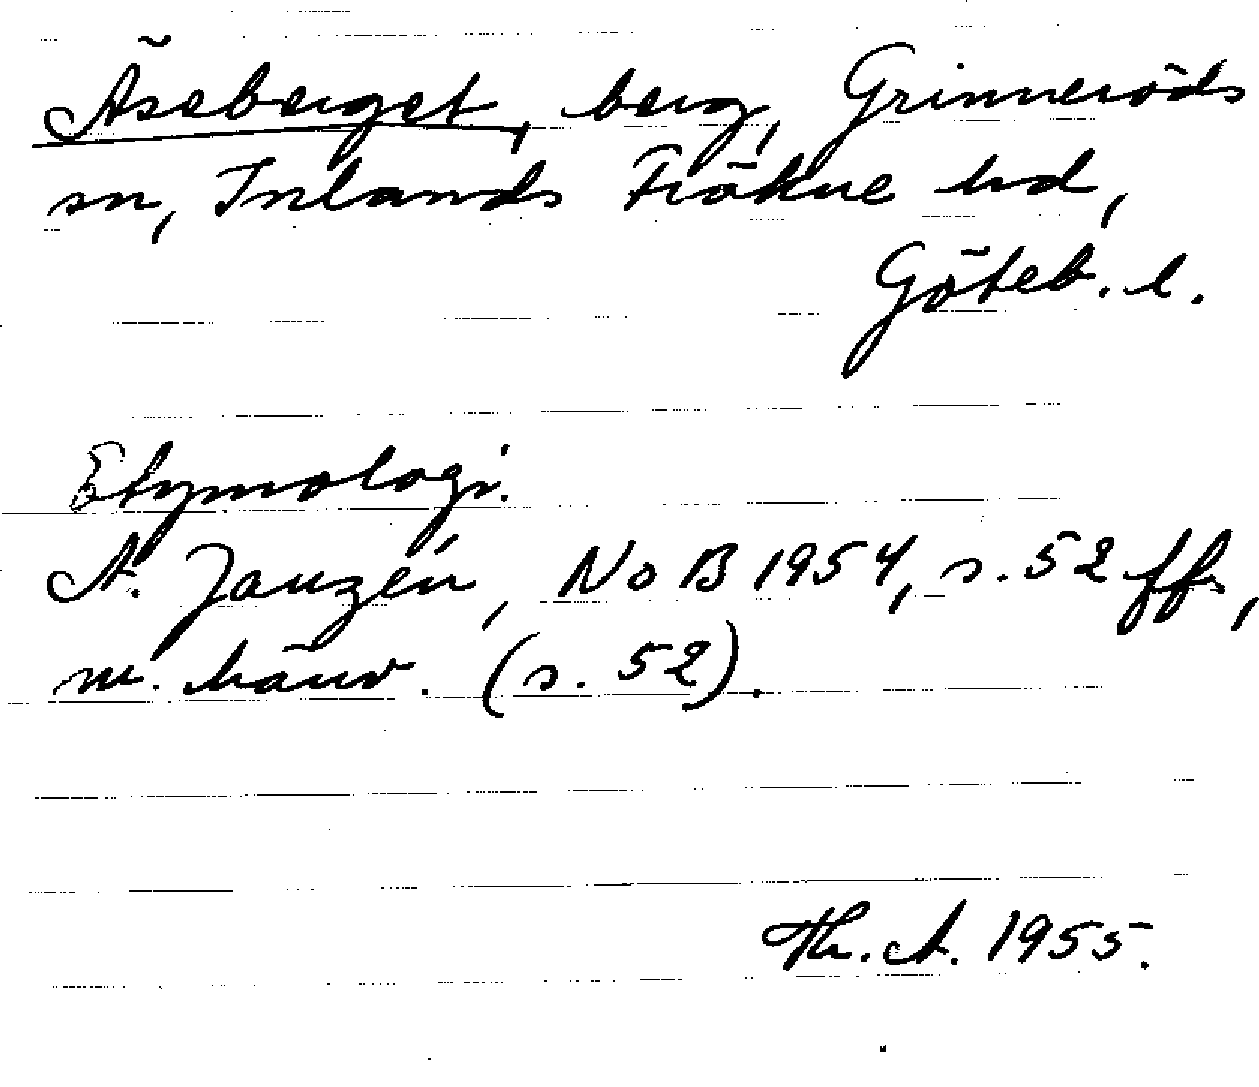 Äseberget, berg, Grinneröds
sn, Inlands Fräkne hd,
Göteb. l.
Etymologi.
A. Janzén, NoB 1954, s. 52 ff,
m. hänv. (s. 52).
Th. A. 1955.